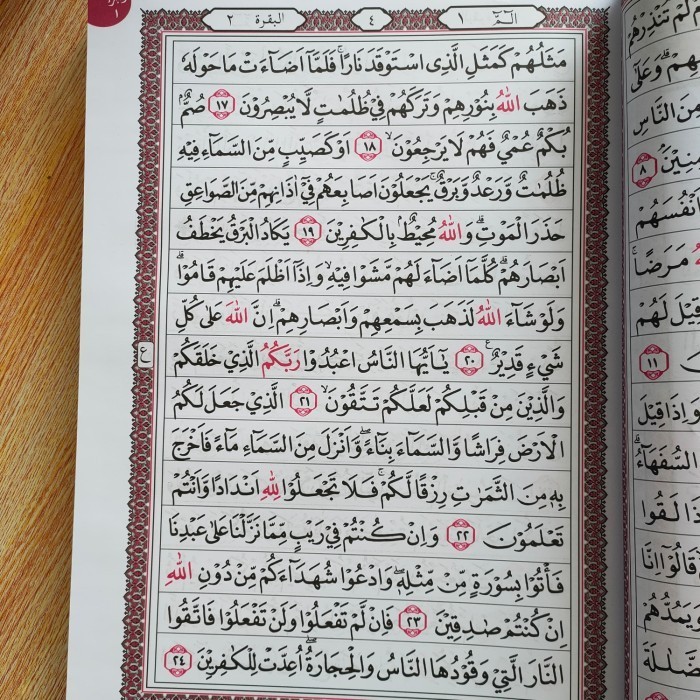 الٓمّٓ ١ ٤ البقرة ٢
مَثَلُهُمْ كَمَثَلِ الَّذِى اسْتَوْقَدَ نَارًا ۚ فَلَمَّآ اَضَآءَتْ مَا حَوْلَهٗ
ذَهَبَ اللّٰهُ بِنُوْرِهِمْ وَتَرَكَهُمْ فِيْ ظُلُمٰتٍ لَّا يُبْصِرُوْنَ ١٧ صُمٌّۢ
بُكْمٌ عُمْيٌ فَهُمْ لَا يَرْجِعُوْنَ ۙ ١٨ اَوْ كَصَيِّبٍ مِّنَ السَّمَآءِ فِيْهِ
ظُلُمٰتٌ وَّرَعْدٌ وَّبَرْقٌ ۚ يَجْعَلُوْنَ اَصَابِعَهُمْ فِيْٓ اٰذَانِهِمْ مِّنَ الصَّوَاعِقِ
حَذَرَ الْمَوْتِ ۗ وَاللّٰهُ مُحِيْطٌۢ بِالْكٰفِرِيْنَ ١٩ يَكَادُ الْبَرْقُ يَخْطَفُ
اَبْصَارَهُمْ ۗ كُلَّمَآ اَضَآءَ لَهُمْ مَّشَوْا فِيْهِ ۙ وَاِذَآ اَظْلَمَ عَلَيْهِمْ قَامُوْا ۗ
وَلَوْ شَآءَ اللّٰهُ لَذَهَبَ بِسَمْعِهِمْ وَاَبْصَارِهِمْ ۗ اِنَّ اللّٰهَ عَلٰى كُلِّ
شَيْءٍ قَدِيْرٌ ࣖ ٢٠ يٰٓاَيُّهَا النَّاسُ اعْبُدُوْا رَبَّكُمُ الَّذِيْ خَلَقَكُمْ
ع
وَالَّذِيْنَ مِنْ قَبْلِكُمْ لَعَلَّكُمْ تَتَّقُوْنَ ۙ ٢١ الَّذِيْ جَعَلَ لَكُمُ
الْاَرْضَ فِرَاشًا وَّالسَّمَآءَ بِنَآءً ۖ وَّاَنْزَلَ مِنَ السَّمَآءِ مَآءً فَاَخْرَجَ
بِهٖ مِنَ الثَّمَرٰتِ رِزْقًا لَّكُمْ ۚ فَلَا تَجْعَلُوْا لِلّٰهِ اَنْدَادًا وَّاَنْتُمْ
تَعْلَمُوْنَ ٢٢ وَاِنْ كُنْتُمْ فِيْ رَيْبٍ مِّمَّا نَزَّلْنَا عَلٰى عَبْدِنَا
فَأْتُوْا بِسُوْرَةٍ مِّنْ مِّثْلِهٖ ۖ وَادْعُوْا شُهَدَآءَكُمْ مِّنْ دُوْنِ اللّٰهِ
اِنْ كُنْتُمْ صٰدِقِيْنَ ٢٣ فَاِنْ لَّمْ تَفْعَلُوْا وَلَنْ تَفْعَلُوْا فَاتَّقُوا
النَّارَ الَّتِيْ وَقُوْدُهَا النَّاسُ وَالْحِجَارَةُ ۖ اُعِدَّتْ لِلْكٰفِرِيْنَ ٢٤
مَ تُنْذِرْهُمْ
وَعَلٰٓى
مِنَ النَّاسِ
٨
اَنْفُسَهُمْ
مَرَضًا ۚ
قِيْلَ لَهُمْ
١١
وَاِذَا قِيْلَ
السُّفَهَآءُ ۗ
لَقُوا
قَالُوْٓا اِنَّا
وَيَمُدُّهُمْ